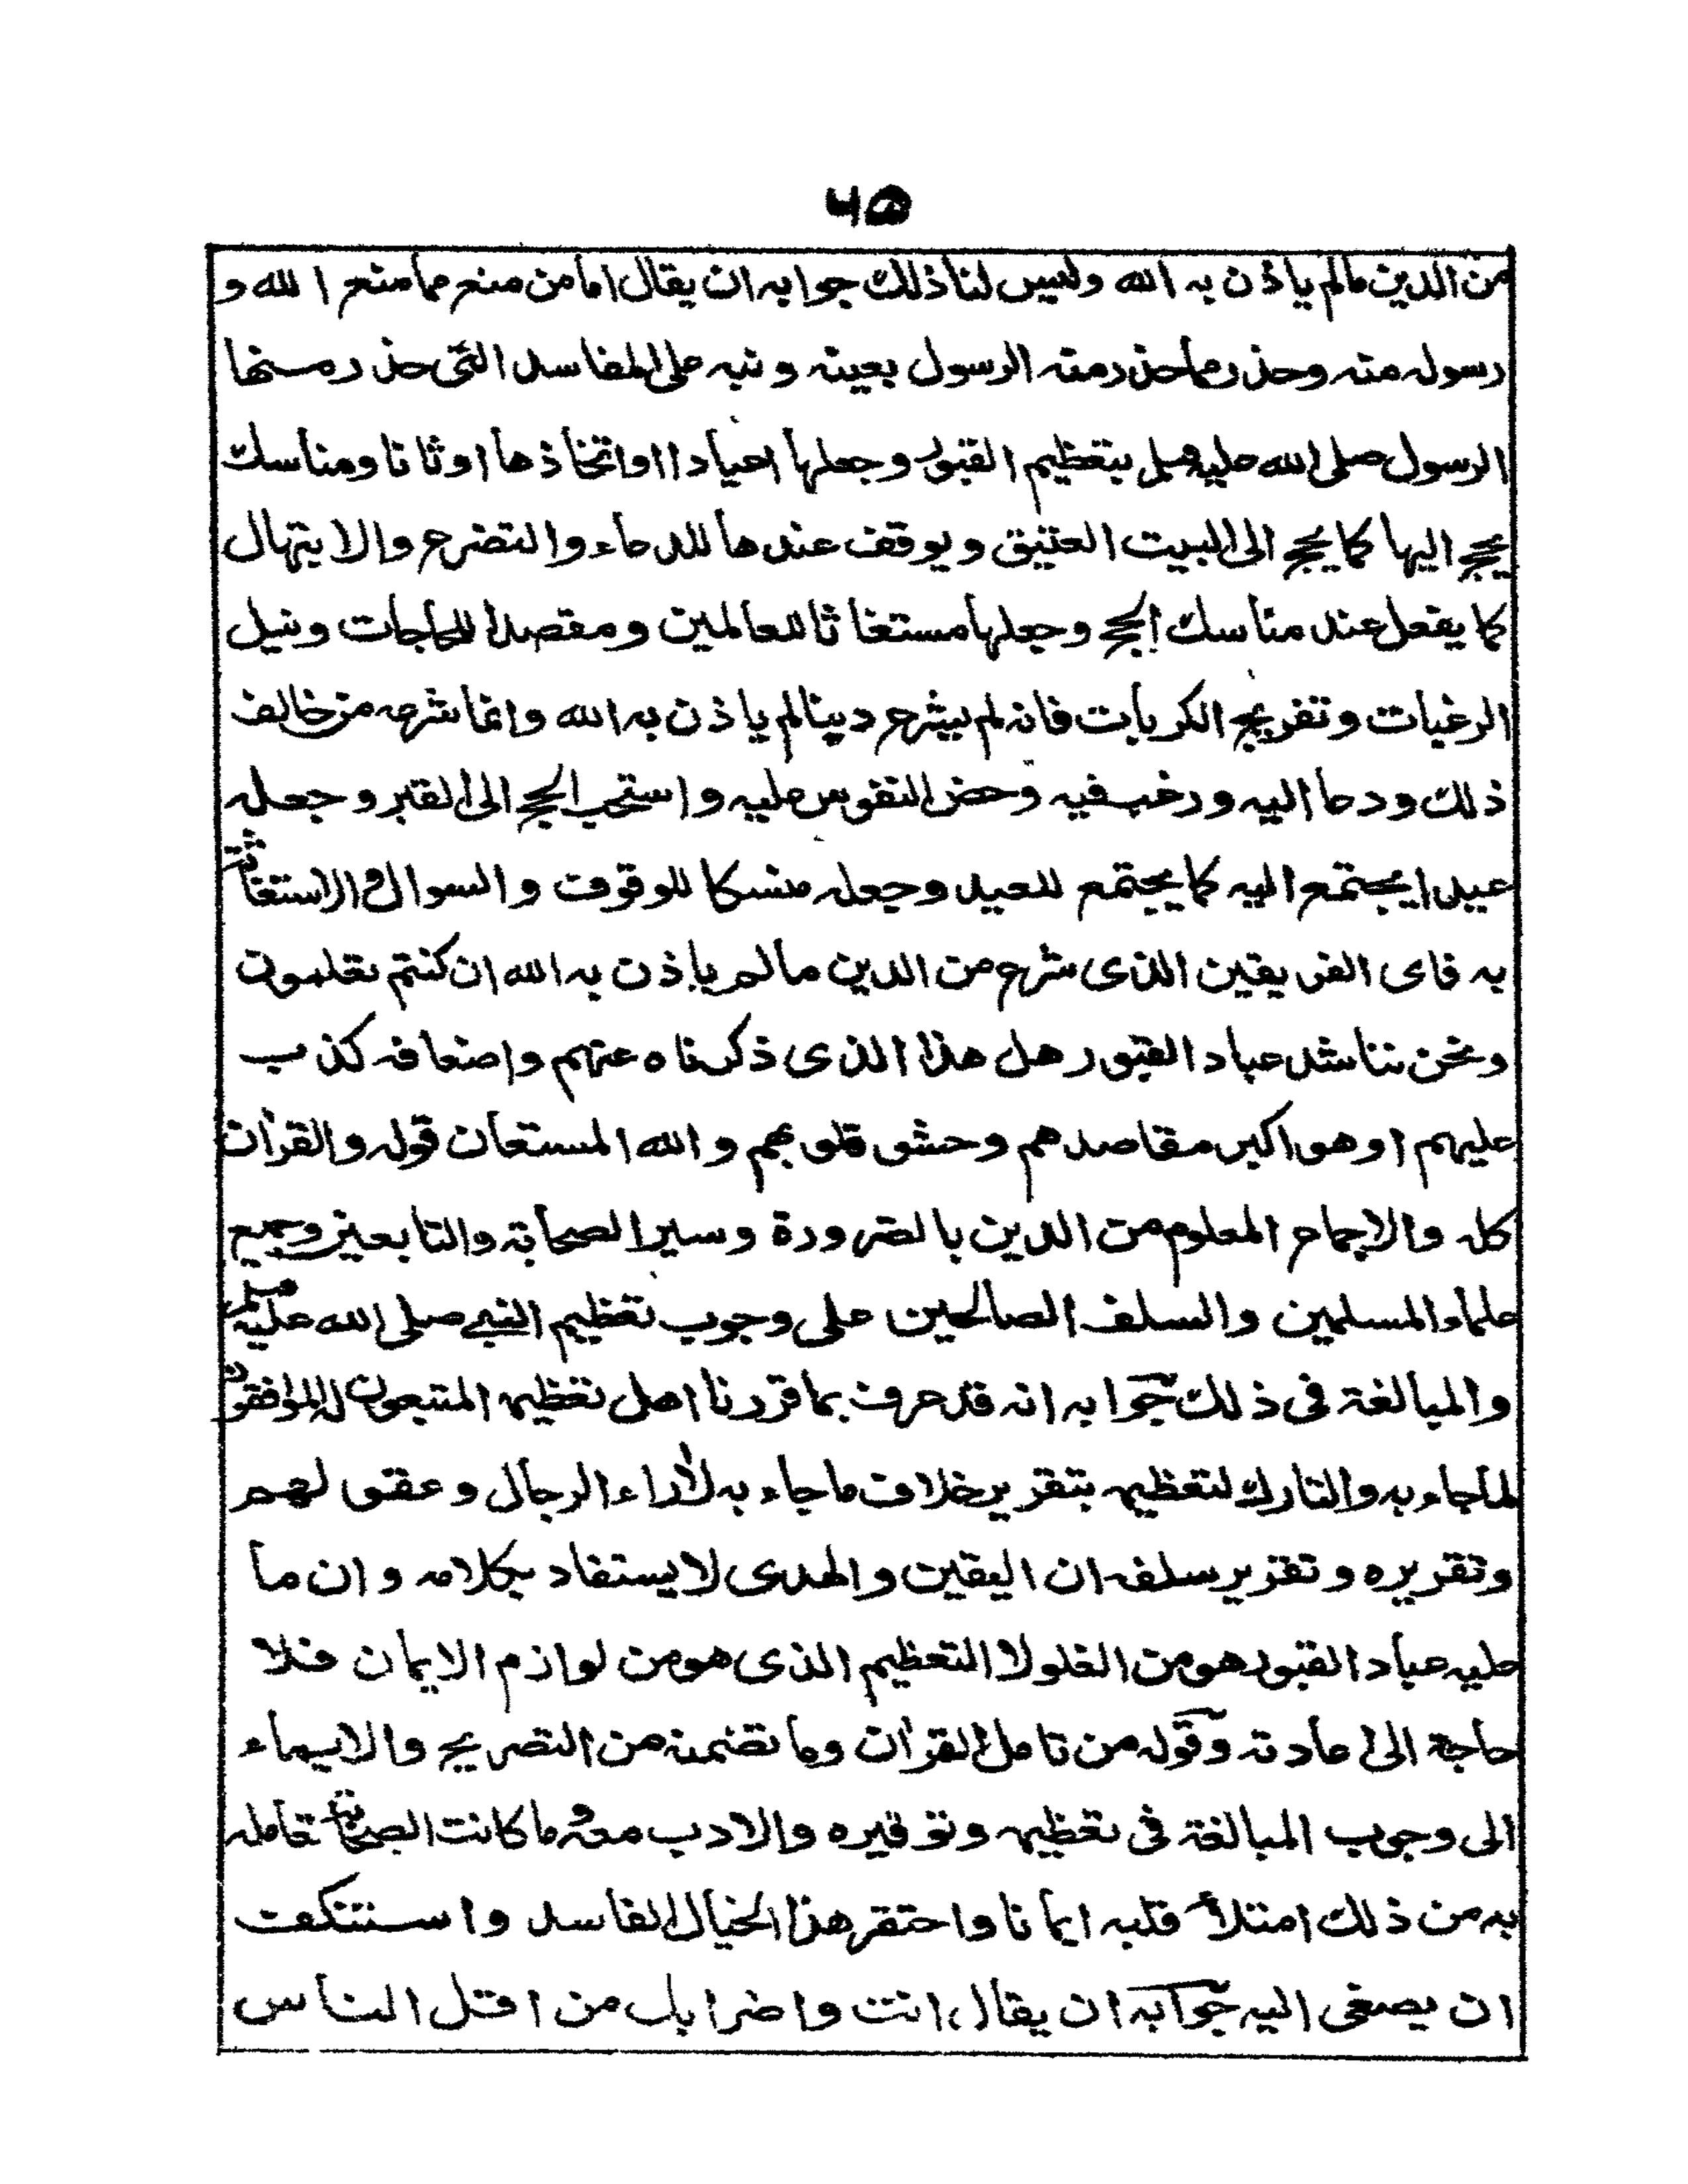 ٦٥
من الدين مالم ياذن به الله وليس لنا ذلك جوابه ان يقال اما من منع مما منع الله و
رسوله منه وحذر مما حذر منه الرسول بعينه ونبه على المفاسد التى حذر منها
الرسول صلى الله عليه وسلم بتعظيم القبور وجعلها اعيادا او اتخاذها اوثانا ومناسك
يحج اليها كما يحج الى البيت العتيق ويوقف عندها للدعاء والتضرع والابتهال
كما يفعل عند مناسك الحج وجعلها مستغاثا للعالمين ومقصدا للحاجات ونيل
الرغبات وتفريج الكربات فانه لم يشرع دينا لم ياذن به الله وانما شرعه من خالف
ذلك ودعا اليه ورغب فيه وحض النفوس عليه واستحب الحج الى القبر وجعله
عيدا يجتمع اليه كما يجتمع للعيد وجعله منسكا للوقوف والسوال والاستغاثة
به فاى الفريقين الذى شرع من الدين مالم ياذن به الله ان كنتم تعلمون
ونحن نناشد عباد القبور هل هذا الذى ذكرناه عنهم واضعافه كذب
عليهم او هو اكبر مقاصدهم وحشو قلوبهم والله المستعان قوله والقرآن
كله والاجماع المعلوم من الدين بالضرورة وسير الصحابة والتابعين وجميع
علماء المسلمين والسلف الصالحين على وجوب تعظيم النبى صلى الله عليه وسلم
والمبالغة فى ذلك جوابه انه قد عرف بما قررنا اهل تعظيمه المتبعون له الموافقون
لما جاء به والتارك لتعظيمه بتقرير خلاف ما جاء به لآراء الرجال وعقولهم
وتقريره وتقرير سلفه ان اليقين والهدى لا يستفاد بكلامه وان ما
عليه عباد القبور هو من الغلو لا التعظيم الذى هو من لوازم الايمان فلا
حاجة الى عادته وقوله من تامل القرآن وما تضمنه من التصريح والايماء
الى وجوب المبالغة فى تعظيمه وتوقيره والادب معه وما كانت الصحابة تعامله
به من ذلك امتلأ قلبه ايمانا واحتقر هذا الخيال الفاسد واستنكف
ان يصغى اليه جوابه ان يقال، انت واضرابك من اقل الناس